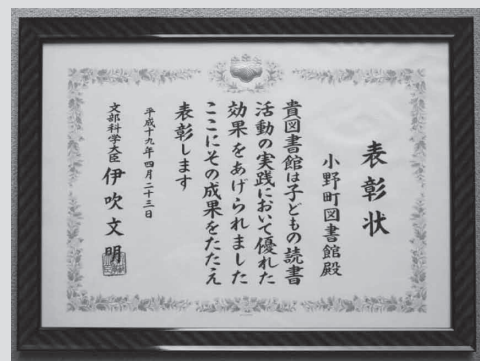 表彰状
小野町図書館殿
貴図書館は子どもの読書
活動の実践において優れた
効果をあげられました
ここにその成果をたたえ
表彰します
平成十九年四月二十三日
文部科学大臣 伊吹文明